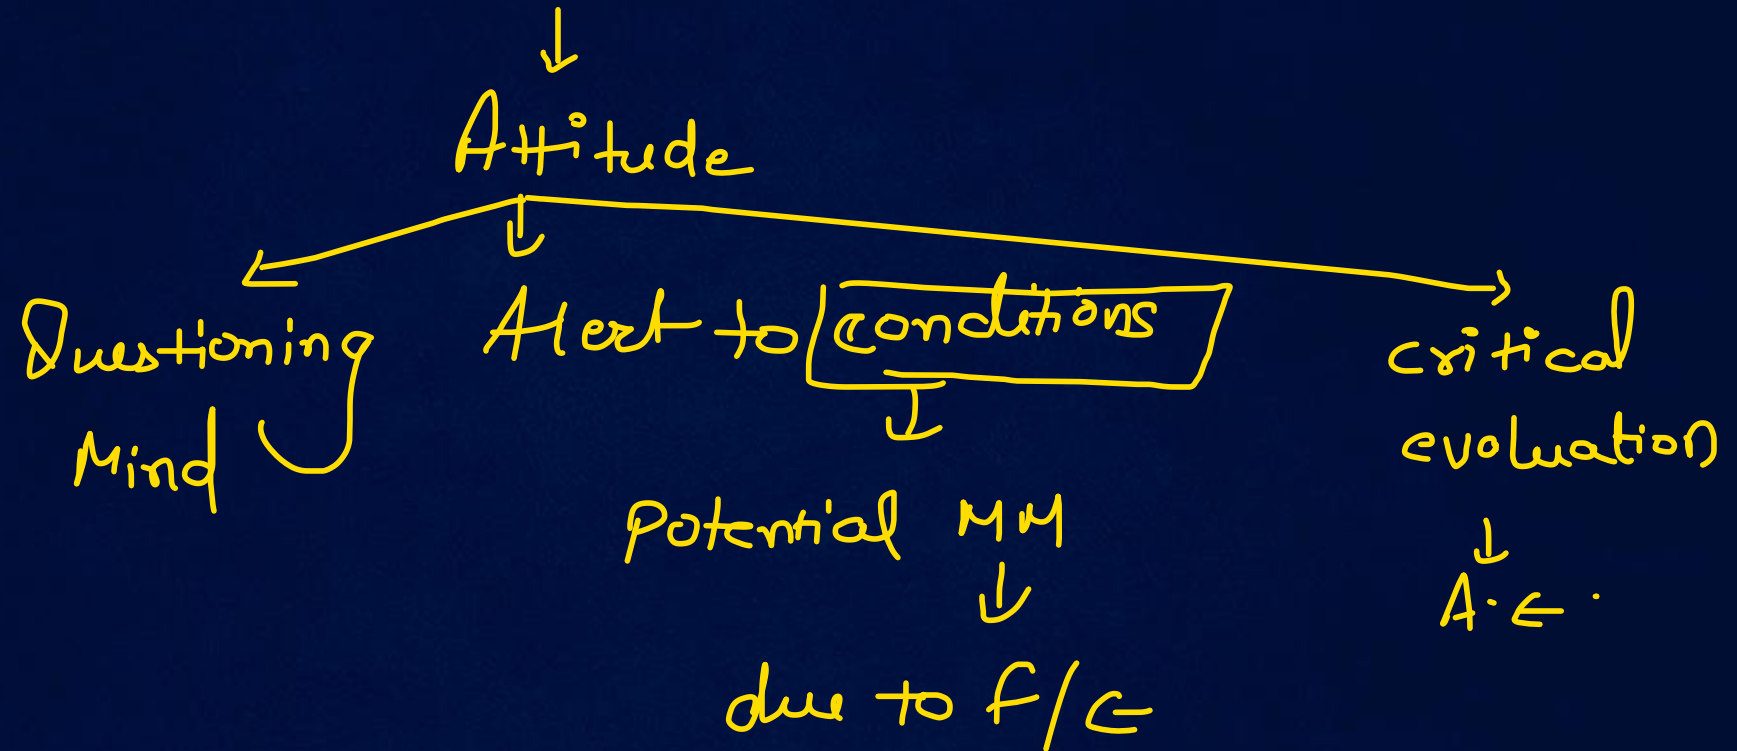 Attitude
Questioning
Mind
Alert to conditions
Potential MM
due to F/E
critical
evaluation
A.E.